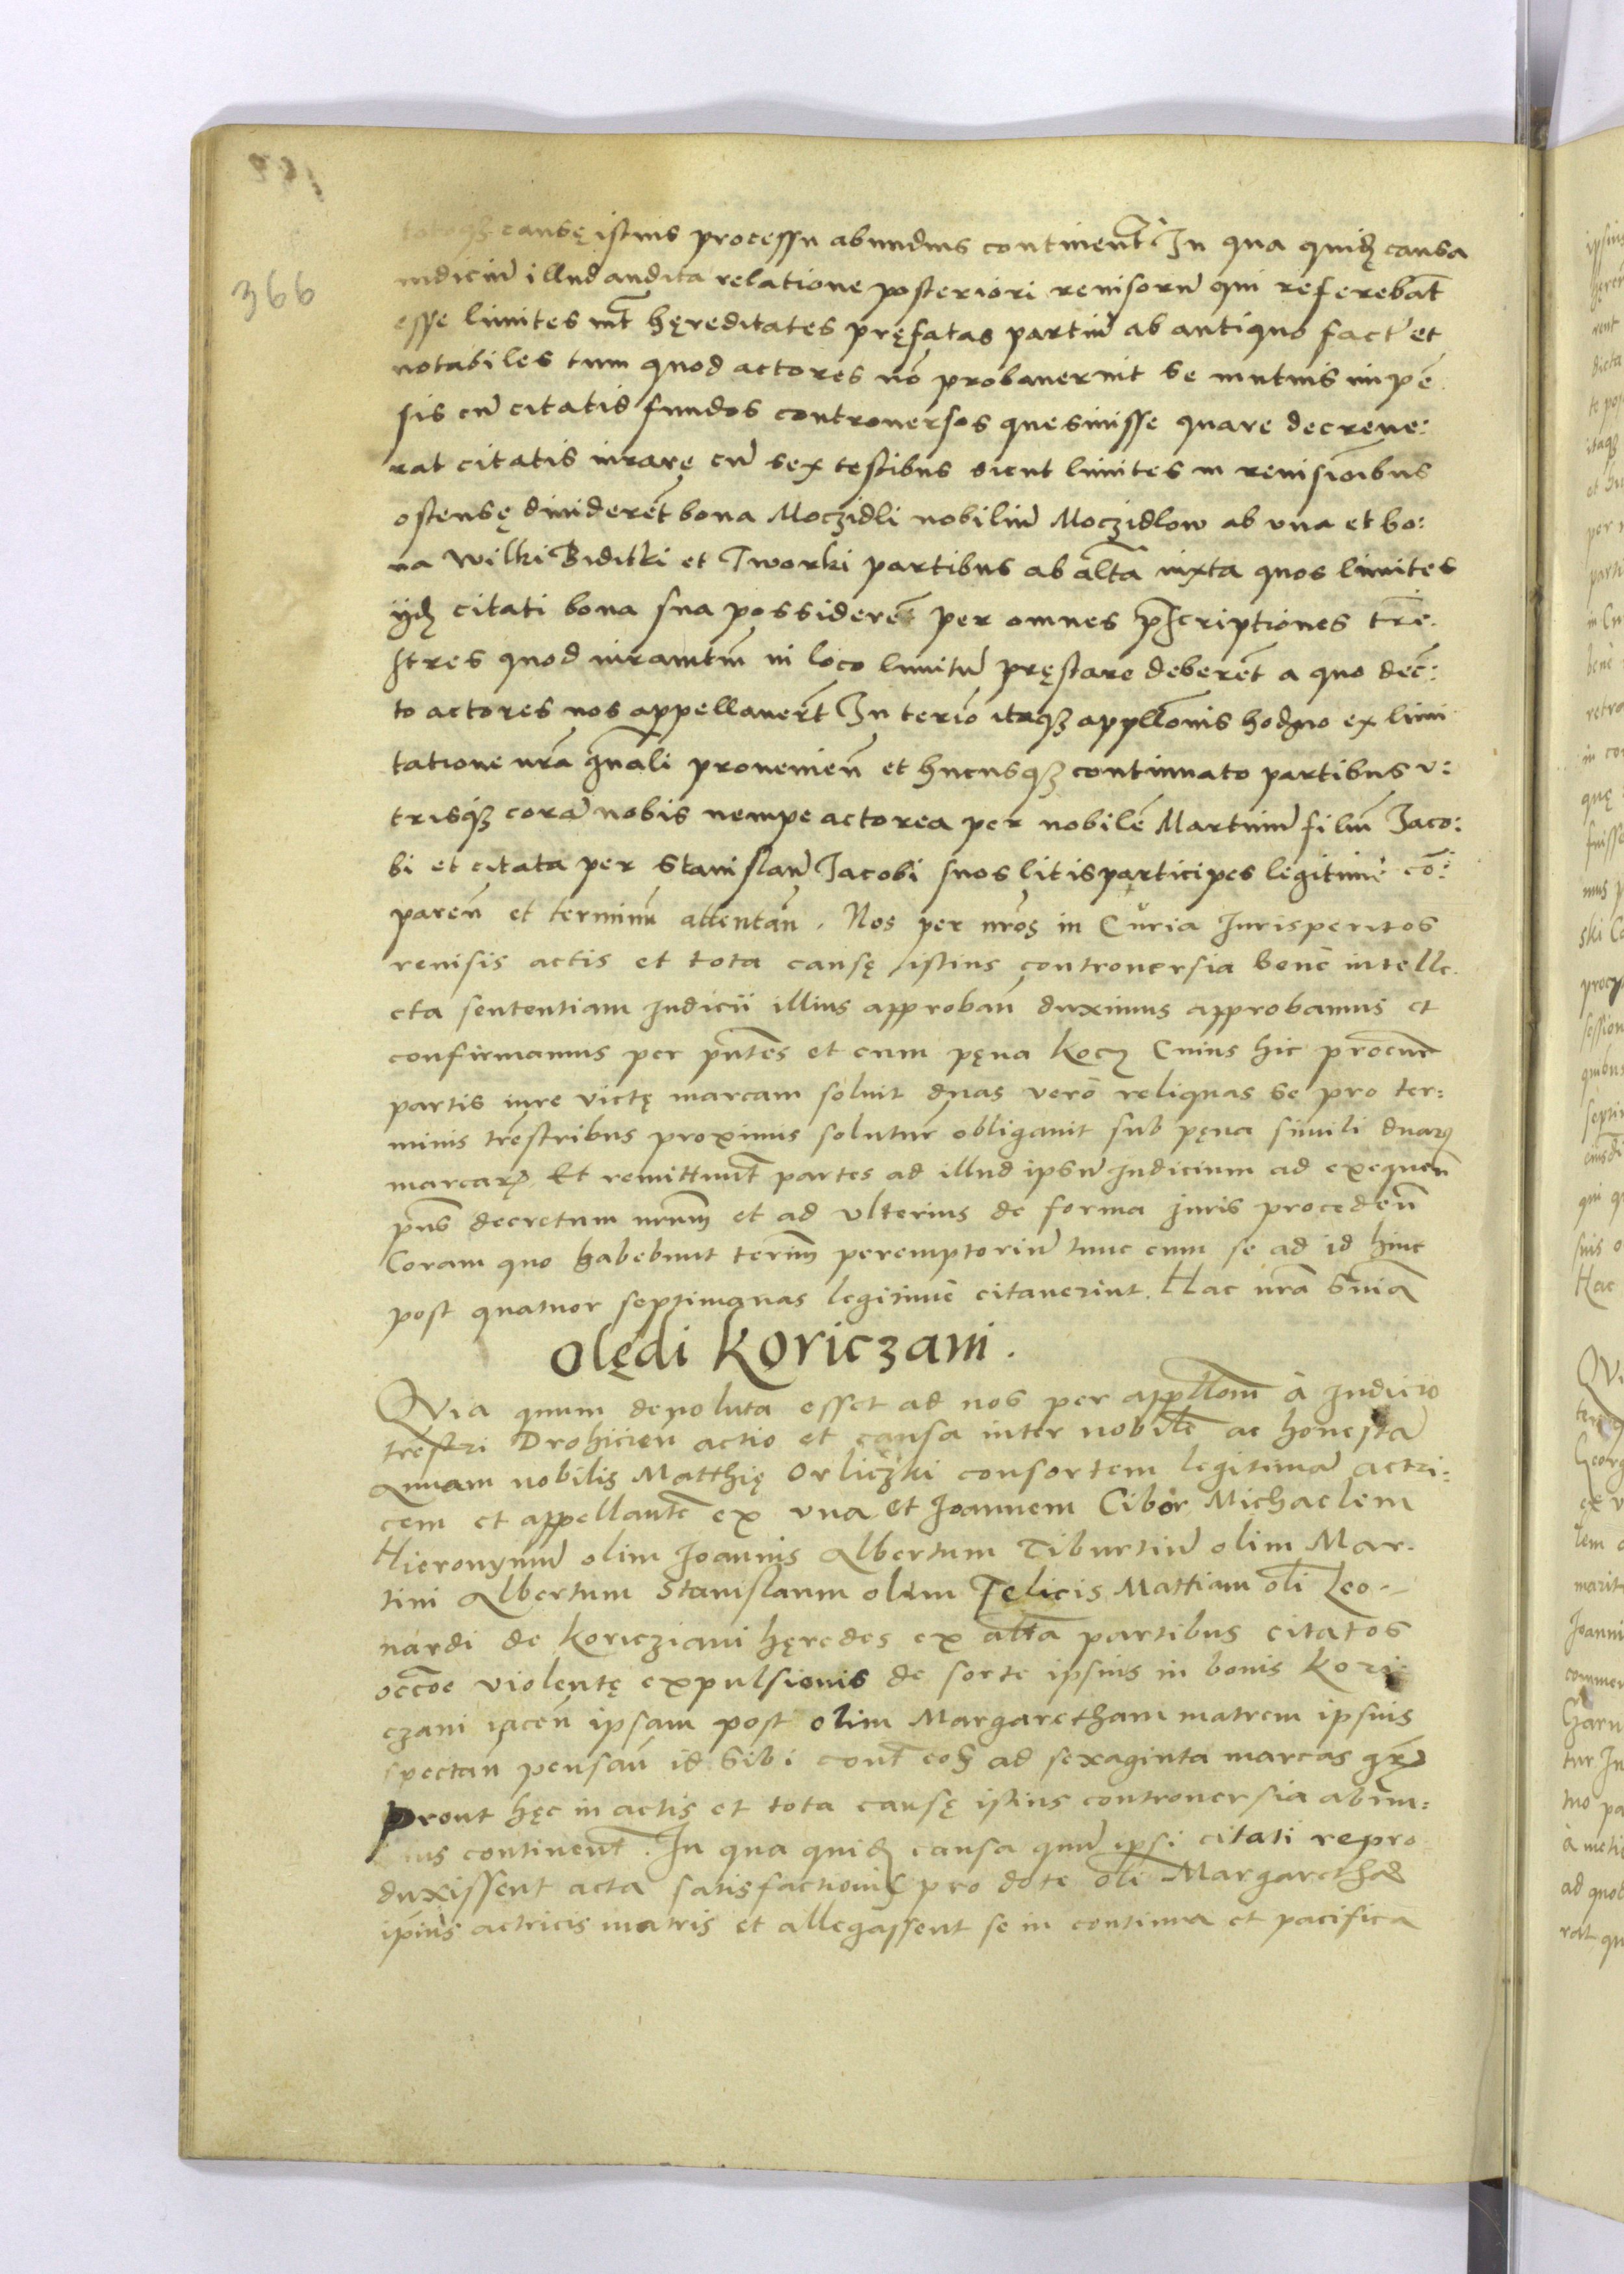 366
totoqȝ causę istius processu abundius continent̃ In qua quidȝ causa
iudiciũ illud audita relatione posteriori reuisorũ qui referebãt
esse limites int̃ hęreditates pręfatas partiũ ab antiquo fact' et
notabiles tum quod actores nõ probauerint se mutuis impẽ
sis cũ citatis fundos controuersos quesiuisse quare decreue:
rat citatis iurarę cũ sex testibus sicut limites in reuisiõibus
ostensę diuiderẽt bona Moczidli nobiliũ Moczidlow ab vna et bo:
na Wilki Biditki et Tworki partibus ab alt̃a iuxta quos limites
ijdȝ citati bona sua possiderẽt per omnes p̃scriptiones tr̃e.
stres quod iuramtm̃ in loco limitũ pręstare deberẽt a quo dec̃:
to actores nos appellauer̃t In ter̃io itaqȝ appl̃lonis hod̃no ex limi
tatione nr̃a gñali prouenieñ et hucusqȝ continuato partibus v:
trisqȝ corã nobis nempe actorea per nobilẽ Martinũ filiũ Jaco:
bi et citata per Stanislaũ Jacobi suos litisparticipes legitime cõ:
pareñ et terminũ attentañ. Nos per nr̃os in Curia Jurisperitos
reuisis actis et tota causę istius controuersia bene intelle.
cta sententiam Judicii illius approbañ duximus approbamus et
confirmamus per p̃ntes et cum pęna kocȝ Cuius hic procur̃
partis iure victę marcam soluit duas vero reliquas se pro ter:
minis tr̃estribus proximis solutur̃ obligauit sub pęna simili duarȝ
marcarȝ. Et remittunt̃ partes ad illud ipsũ Judicium ad exequeñ
p̃ns decretum nr̃um et ad vlterius de forma Juris procedeñ
Coram quo habebunt ter̃im̃ peremptoriũ tunc cum se ad id hinc
post quatuor septimanas legitime citauerint. Hac nr̃a s̃nia
Olędi Koriczani.
Quia quum deuoluta esset ad nos per appl̃lom̃ à Judicio
tr̃estri Drohicieñ actio et causa inter nobilẽ ac honestã
Annam nobilis Matthię Orliczki consortem legitimã actri:
cem et appellantẽ ex vna et Joannem Cibor Michaelem
Hieronymũ olim Joannis Albertum Tiburtiũ olim Mar.
tini Albertum Stanislaum olim Felicis Mattiam oli Leo-
nardi de Koricziani hęredes ex alt̃a partibus citatos
occõe violentę expulsionis de sorte ipsius in bonis Kori
czani iaceñ ipsam post olim Margaretham matrem ipsius
spectañ pensañ id sibi cont̃ eosȝ ad sexaginta marcas gr̃
Prout hęc in actis et tota causę istius controuersia abun:
ius continent̃. In qua quidȝ causa quũ ipsi citati repro
duxissent acta satisfactionis pro dote oli Margarethae
ipsius actricis matris et allegassent se in continua et pacifica